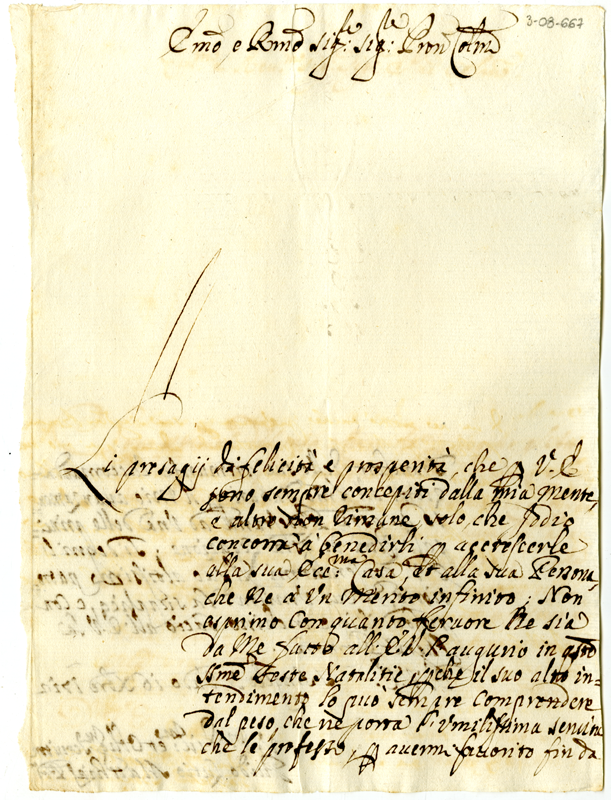 3-08-667
Emo e Rmo sig:re sig:re Pron Colmo
Li presagij di felicità e prosperità, che p V. E
sono sempre concepiti dalla mia mente,
e altro non rimane, solo, che Iddio
concorra à benedirli p accrescerle
alla sua Ecc:ma Casa, et alla sua Persona,
che ne à Un Merito infinito; Non
esprimo con quanto fervore Le sia
da Me fatto all' E.V. l'augurio in
sme feste Natalitie, pche il suo alto in=
tendimento lo può sempre Comprendere
dal peso, che ne porta l'Umilissima
che le professo, p avermi favorito fin da